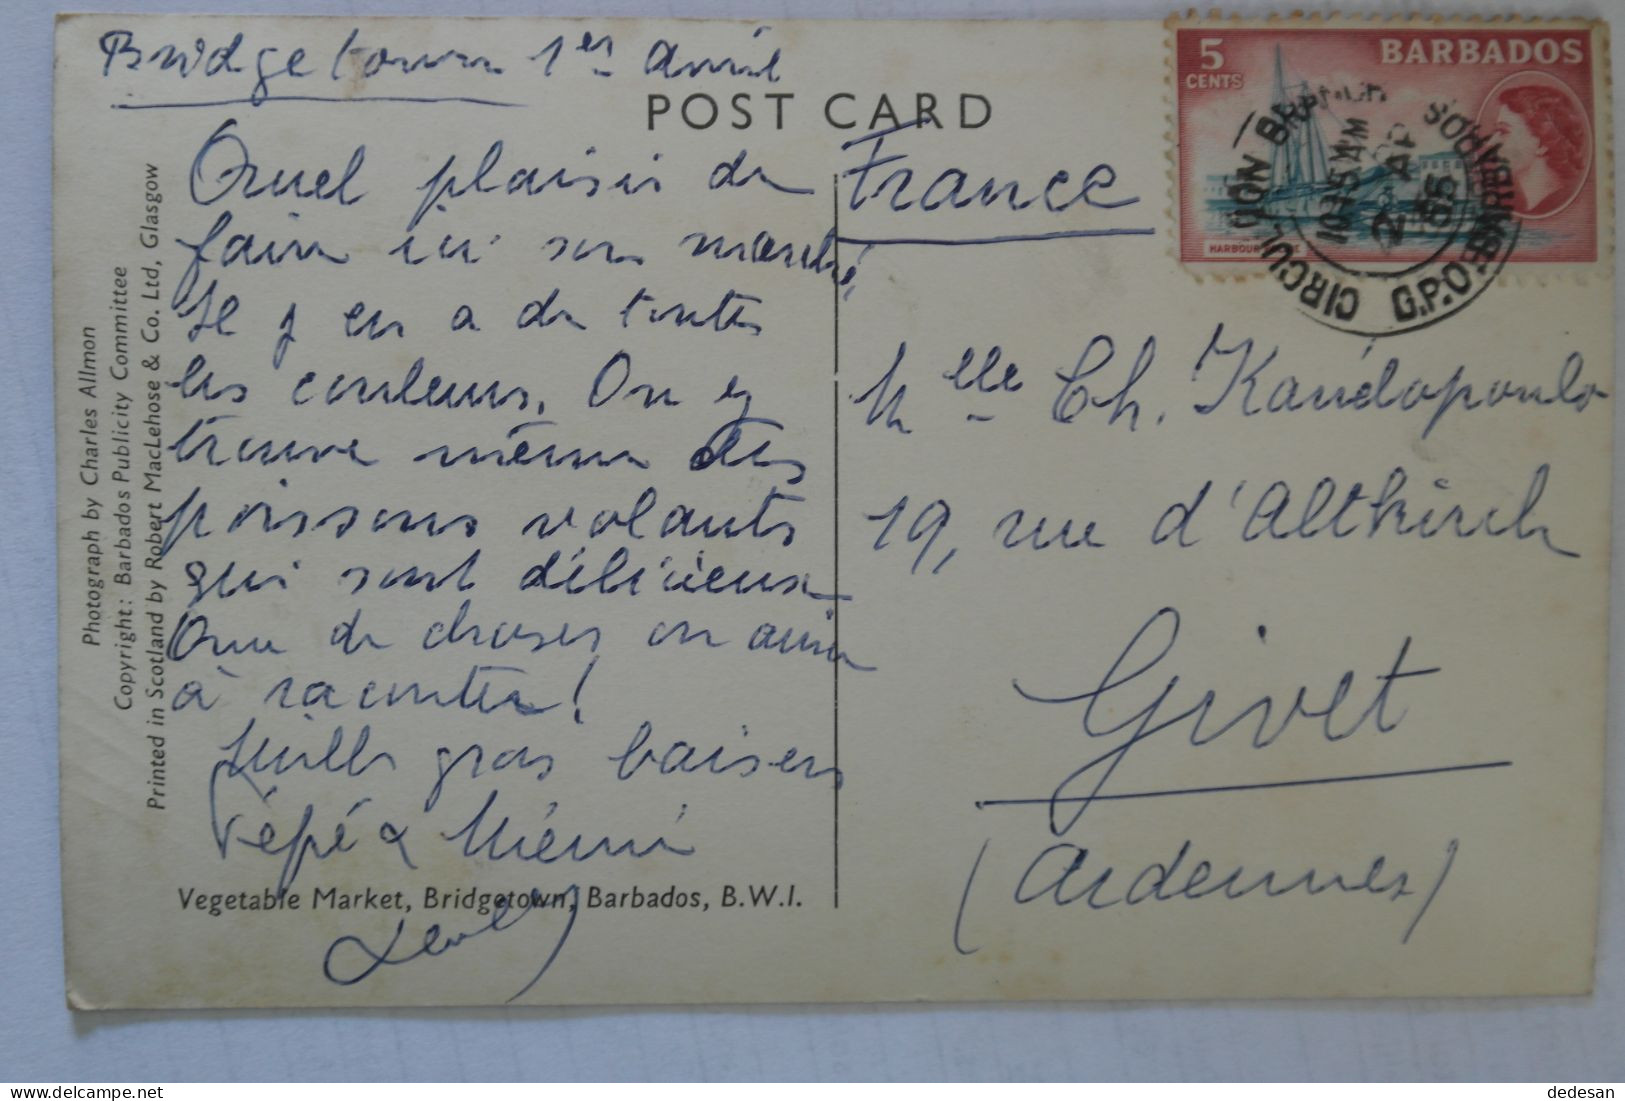 Bridgetown 1er avril
POST CARD
Quel plaisir de
faire ici son marché,
Il y en a de toutes
les couleurs. On y
trouve même des
poissons volants
qui sont délicieux
Que de choses on aura
à raconter!
Mille gros baisers
Pépé & Mémé
Vegetable Market, Bridgetown, Barbados, B.W.I.
Photograph by Charles Allmon
Copyright: Barbados Publicity Committee
Printed in Scotland by Robert MacLehose & Co. Ltd, Glasgow
France
Mlle Ch. Kanédopoulo
19, rue d'Altkirch
Givet
(Ardennes)
5
CENTS
BARBADOS
HARBOUR
CIRCULATION BRANCH
G.P.O. BARBADOS
10 45 AM
2 AP
dedesan
delcampe.net